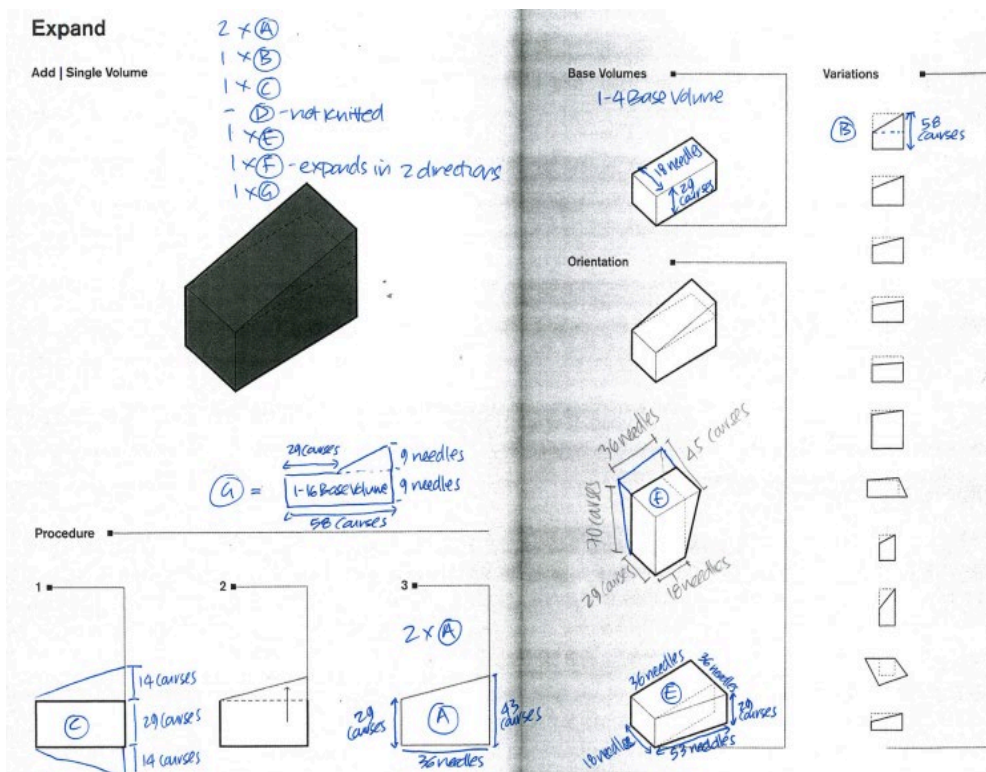 Expand
Add | Single Volume
2 × A
1 × B
1 × C
- D - not knitted
1 × E
1 × F - expands in 2 directions
1 × G
G =
29 courses
1-16 Base Volume
9 needles
9 needles
58 courses
Procedure
1
14 courses
C
29 courses
14 courses
2
3
2 × A
29 courses
A
43 courses
36 needles
Base Volumes
1-4 Base Volume
18 needles
29 courses
Orientation
36 needles
45 courses
F
70 courses
29 courses
18 needles
36 needles
36 needles
E
29 courses
18 needles
53 needles
Variations
B
58 courses